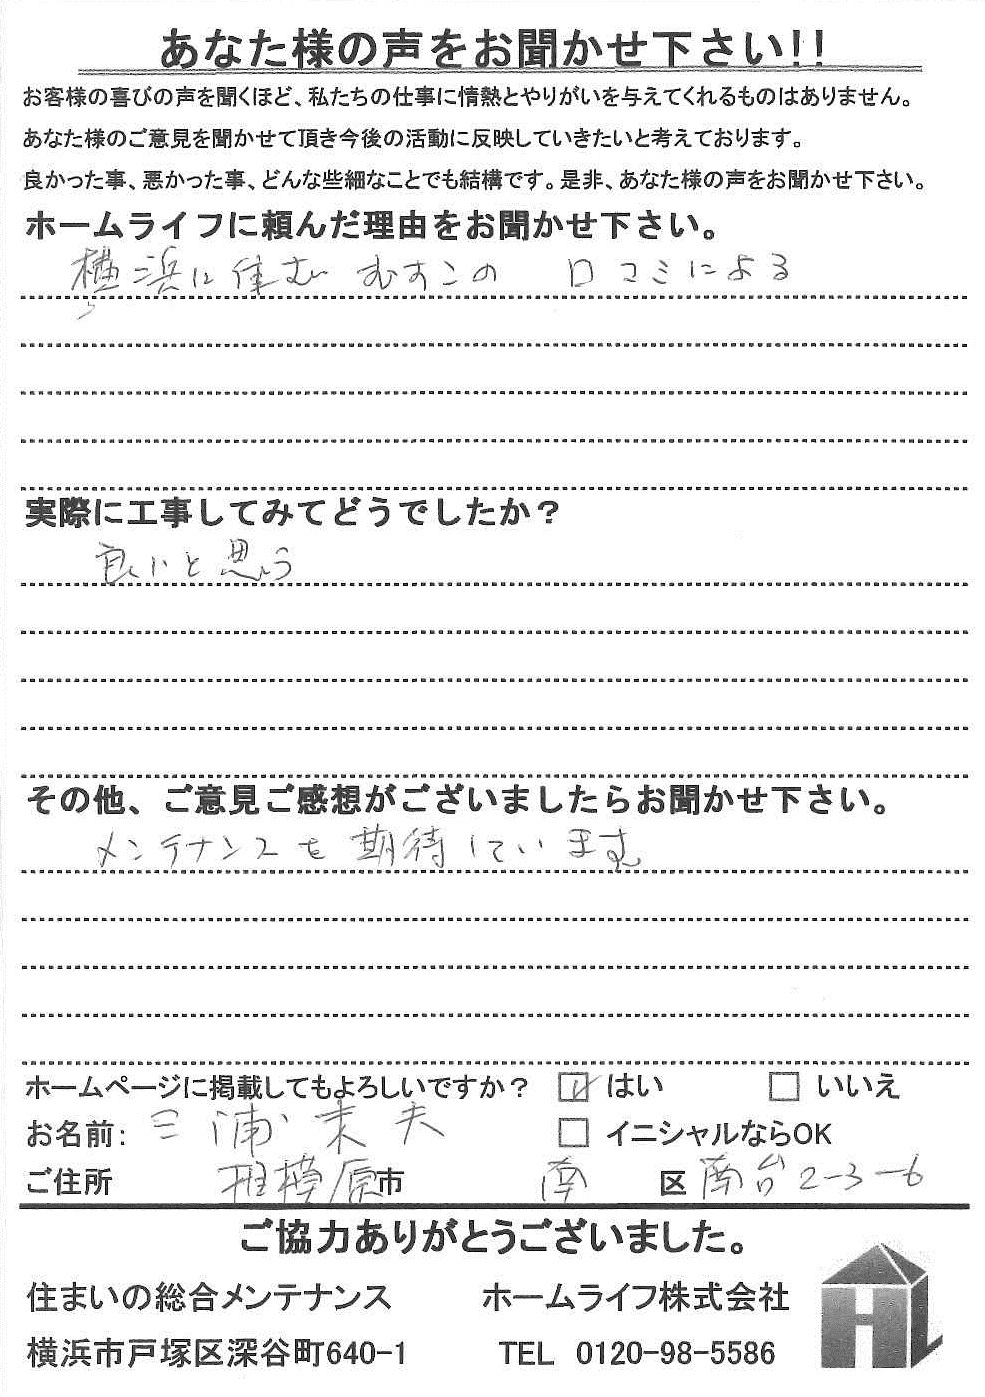 あなた様の声をお聞かせ下さい!!
お客様の喜びの声を聞くほど、私たちの仕事に情熱とやりがいを与えてくれるものはありません。
あなた様のご意見を聞かせて頂き今後の活動に反映していきたいと考えております。
良かった事、悪かった事、どんな些細なことでも結構です。是非、あなた様の声をお聞かせ下さい。
ホームライフに頼んだ理由をお聞かせ下さい。
横浜に住む むすこの 口コミによる
実際に工事してみてどうでしたか？
良いと思う
その他、ご意見ご感想がございましたらお聞かせ下さい。
メンテナンスを期待しています
ホームページに掲載してもよろしいですか？ ☑ はい □ いいえ
お名前: 三浦末夫 □ イニシャルならOK
ご住所 相模原市 南区 南台2-3-6
ご協力ありがとうございました。
住まいの総合メンテナンス ホームライフ株式会社
横浜市戸塚区深谷町640-1 TEL 0120-98-5586
HL